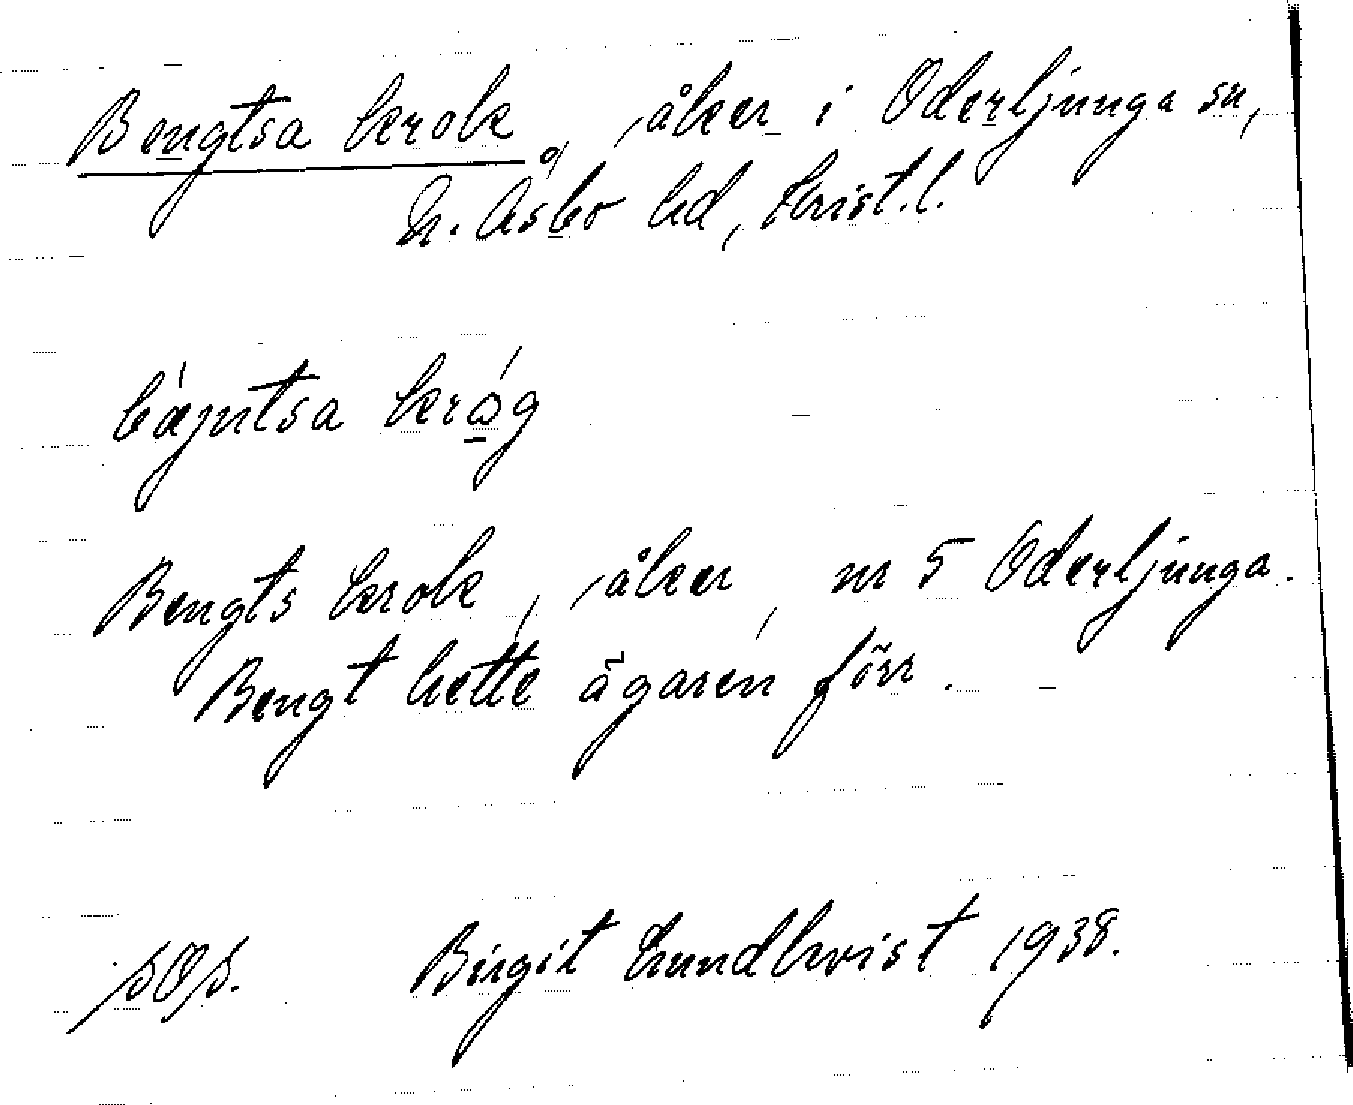 Bengtsa krok, åker i Oderljunga sn,
N. Åsbo hd, Krist. l.
bæjntsa krog
Bengts krok, åker, nr 5 Oderljunga.
Bengt hette ägaren förr.
Birgit Lundkvist 1938.